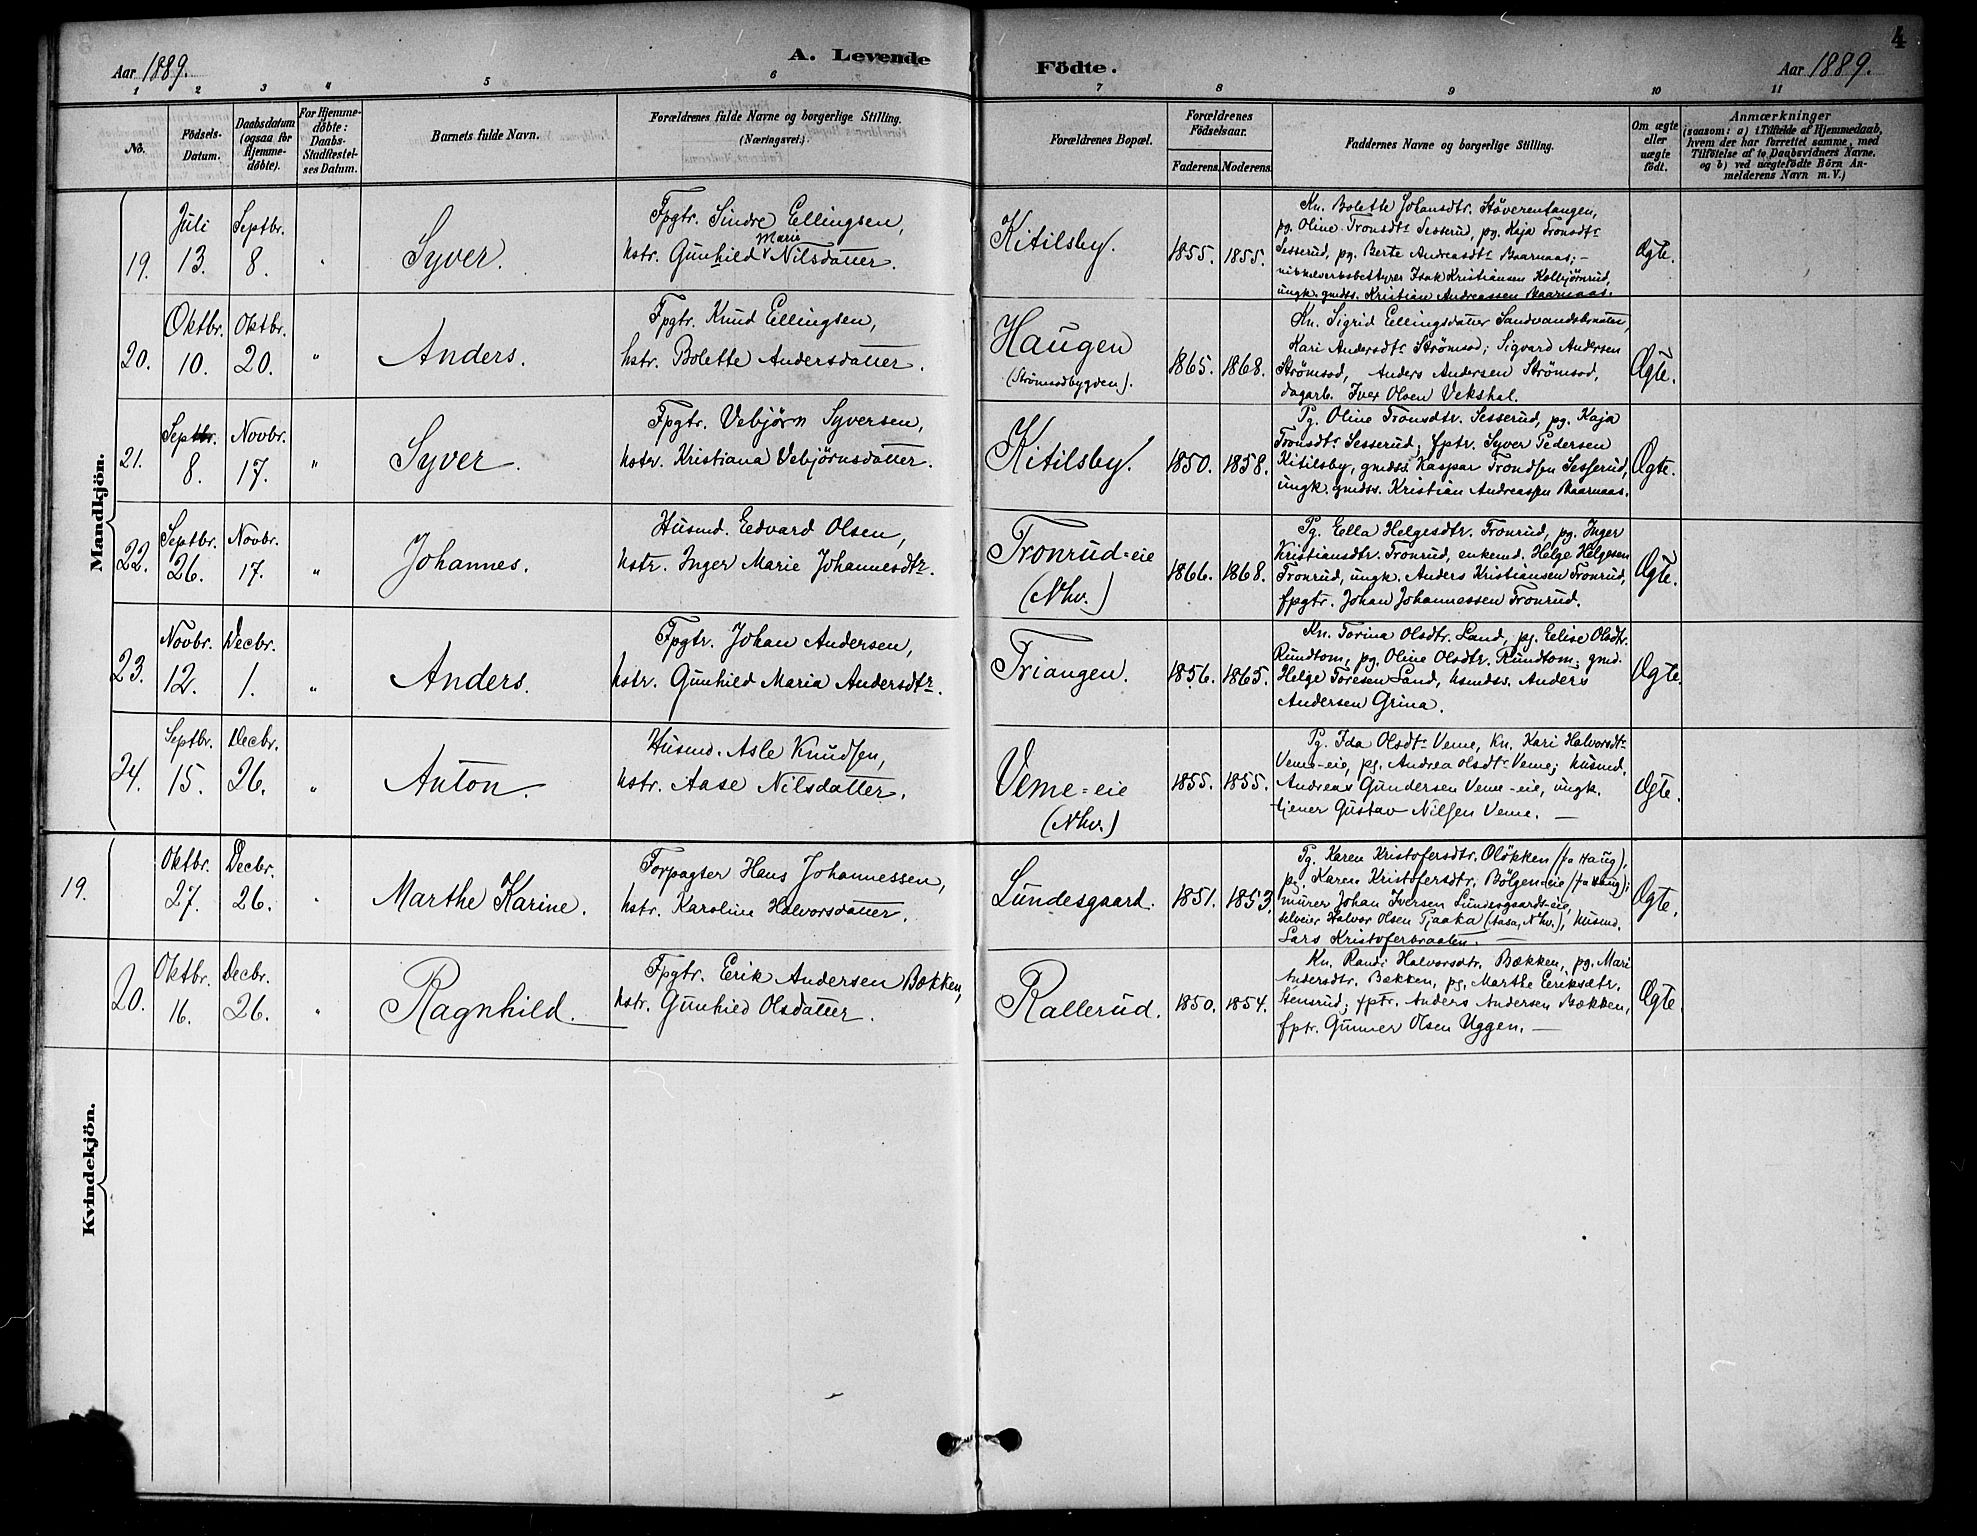 4
Aar 1889.
A. Levende Födte.
Aar 1889.
1 2 3 4 5 6 7 8 9 10 11
No.
Födsels-Datum.
Daabsdatum (ogsaa for Hjemme-döbte).
For Hjemme-döbte: Daabs-Stadfæstel-ses Datum.
Barnets fulde Navn.
Forældrenes fulde Navne og borgerlige Stilling. (Næringsvei.)
Forældrenes Bopæl.
Forældrenes Födselsaar.
Faderens. Moderens.
Faddernes Navne og borgerlige Stilling.
Om ægte eller uægte født.
Anmærkninger
(saasom: a) i Tilfælde af Hjemmedaab,
hvem der har forrettet samme, med
Tilföielse af to Daabsvidners Navne.
og b) ved uægtefödte Börn An-
melderens Navn m. V.)
Mandkjön.
19. Juli 13. Septbr. 8. " Syver.
Fpgtr. Sindre Ellingsen,
hstr. Gunhild Marie Nilsdatter.
Kitilsby. 1855. 1855.
Kn. Bolette Johansdtr. Støverentangen,
pg. Oline Tronsdtr Sesserud, pg. Kaja Tronsdtr
Sesserud, pg. Berte Andreasdtr Baarnaas; -
Isak Kristiansen Kolbjørnrud,
ungk. gmdss. Kristian Andreassen Baarnaas.
Ægte.
20. Oktbr. 10. Oktbr. 20. " Anders.
Fpgtr. Knud Ellingsen,
hstr. Bolette Andersdatter.
Haugen (Strømsodbygden). 1865. 1868.
Kn. Sigrid Ellingsdatter Sandvandsbraaten,
Kari Andersdtr Strømsod; Sigvard Andersen
Strømsod, Anders Andersen Strømsod,
dagarb. Iver Olsen Vekshal.
Ægte.
21. Septbr. 8. Novbr. 17. " Syver.
Fpgtr. Vebjörn Syversen,
hstr. Kristiana Vebjörnsdatter.
Kitilsby. 1850. 1858.
Pg. Oline Tronsdtr. Sesserud, pg. Kaja
Tronsdtr Sesserud, fptr. Syver Pedersen
Kitilsby, gmdss. Kaspar Trondsen Sesserud,
ungk. gmdss. Kristian Andreassen Baarnaas.
Ægte.
22. Septbr. 26. Novbr. 17. " Johannes.
Husmd. Edvard Olsen,
hstr. Inger Marie Johannesdtr.
Tronrud=eie (Nhv.) 1866. 1868.
Pg. Ella Helgesdtr. Tronrud, pg. Inger
Kristiansdtr. Tronrud, enkemd. Helge Helgesen
Tronrud, ungk. Anders Kristiansen Tronrud,
fpgtr. Johan Johannessen Tronrud.
Ægte.
23. Novbr. 12. Decbr. 1. " Anders.
Fpgtr. Johan Andersen,
hstr. Gunhild Maria Andersdtr.
Triangen. 1856. 1865.
Kn. Torina Olsdtr. Land, pg. Elise Olsdtr.
Rundtom, pg. Oline Olsdtr. Rundtom; gmd.
Helge Toresen Land, husmdss. Anders
Andersen Grina.
Ægte.
24. Septbr. 15. Decbr. 26. " Anton.
Husmd. Asle Knudsen,
hstr. Aase Nilsdatter.
Veme=eie (Nhv.) 1855. 1855.
Pg. Ida Olsdtr Veme, Kn. Kari Halvorsdtr
Veme-eie, pg. Andrea Olsdtr Veme; husmd.
Andreas Gundersen Veme-eie, ungk.
tjener Gustav Nilsen Veme. —
Ægte.
Kvindekjön.
19. Oktbr. 27. Decbr. 26. " Marthe Karine.
Forpagter Hans Johannessen,
hstr. Karoline Halvorsdatter.
Lundesgaard. 1851. 1853.
Pg. Karen Kristofersdtr. Oløkken (fra Haug),
pg. Karen Kristofersdtr. Bölgen=eie (fra Haug);
murer Johan Iversen Lundesgaards-eie,
selveier Halvor Olsen Tjaaka (Aasa, Nhv.), husmd.
Lars Kristoferbraaten. —
Ægte.
20. Oktbr. 16. Decbr. 26. " Ragnhild.
Fpgtr. Erik Andersen Bækken,
hstr. Gunhild Olsdatter.
Rallerud. 1850. 1854.
Kn. Randi Halvorsdtr. Bækken, pg. Mari
Andersdtr. Bækken, pg. Marthe Eriksdtr.
Stensrud; fptr. Anders Andersen Bækken,
fptr. Gunner Olsen Uggen. —
Ægte.